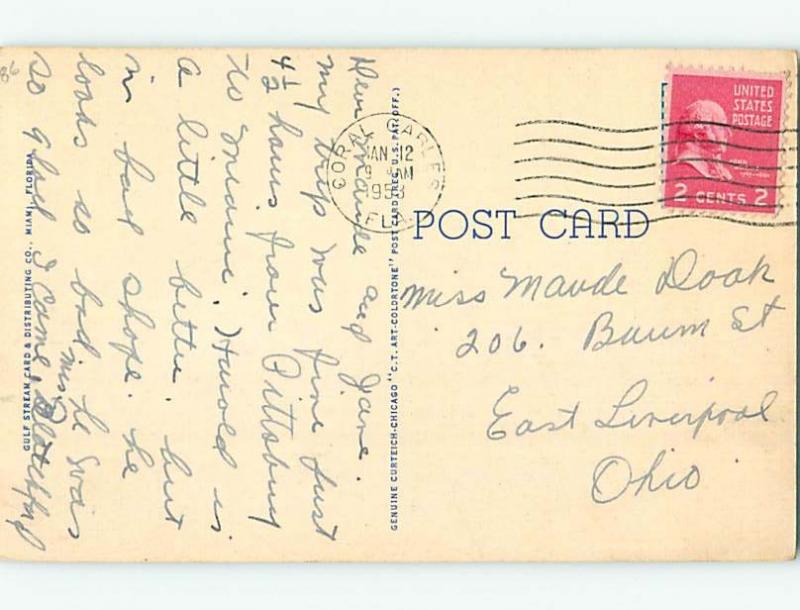 Dear Maude and Jane.
my trip was fine just
4½ hours from Pittsburg
to Miami. Harold is
a little better. but
in bad shape. he
looks so bad he was
so glad I came.
Miss Blatchford
GULF STREAM CARD & DISTRIBUTING CO., MIAMI, FLORIDA
GENUINE CURTEICH-CHICAGO "C.T. ART-COLORTONE" POST CARD (REG. U.S. PAT. OFF.)
CORAL GABLES
JAN 12
9 AM
FLA
UNITED
STATES
POSTAGE
2 CENTS 2
POST CARD
Miss Maude Doak
206. Baum St
East Liverpool
Ohio
86